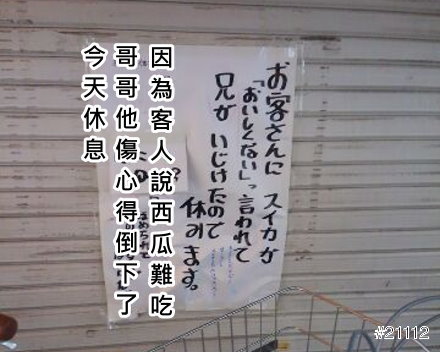 お客さんに スイカが
「おいしくない」って言われて
兄が いじけたので
休みます。
因為客人說西瓜難吃
哥哥他傷心得倒下了
今天休息
#21112